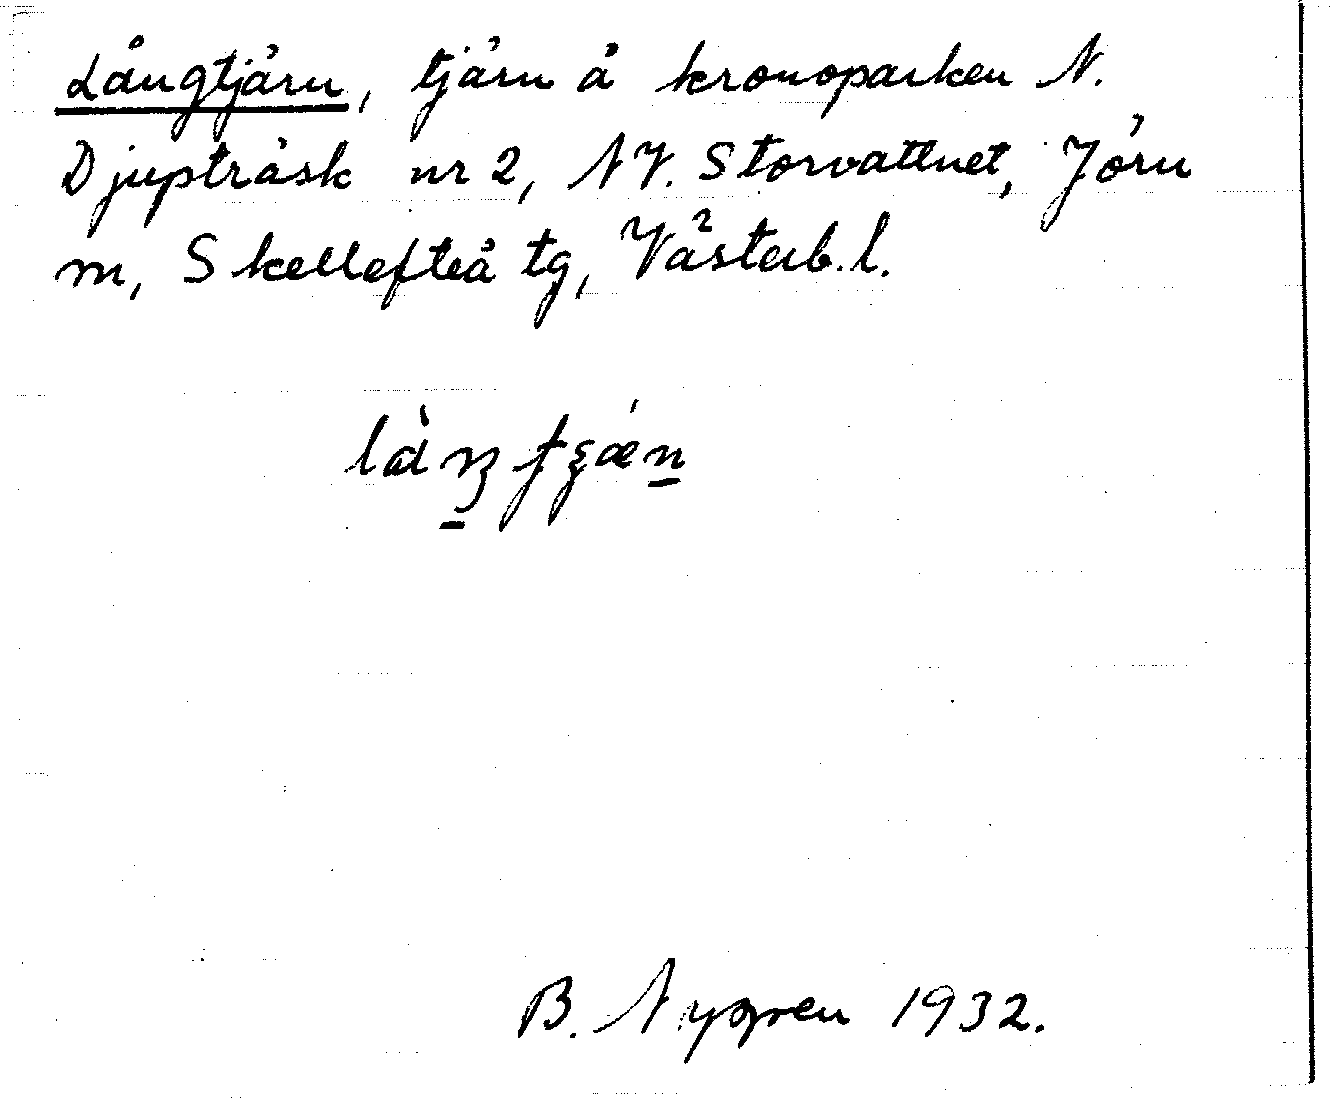 Långtjärn, tjärn å kronoparken N.
Djupträsk nr 2, NV. Storvattnet, Jörn
m, Skellefteå tg, Västerb. l.
B. Nygren 1932.